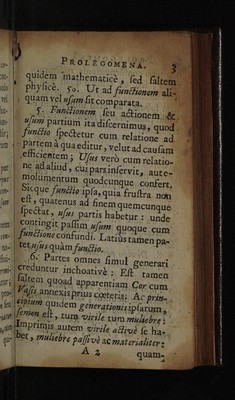 PROLEGOMENA. 3
quidem mathematicè, sed saltem
physicè. 5o. Ut ad functionem ali-
quam vel usum sit comparata.
5. Functionem seu actionem &
usum partium ita discernimus, quod
functio spectetur cum relatione ad
partem à qua editur, velut ad causam
efficientem; Usus verò cum relatio-
ne ad aliud, cui pars inservit, aut e-
molumentum quodcunque confert.
Sicque functio ipsa, quia frustra non
est, quatenus ad finem quemcunque
spectat, usus partis habetur: unde
contingit passim usum quoque cum
functione confundi. Latiùs tamen pa-
tet usus quàm functio.
6. Partes omnes simul generari
creduntur inchoativè: Est tamen
saltem quoad apparentiam Cor cum
Vasis annexis prius cæteris: Ac prin-
cipium quidem generationis ipsarum,
semen est, tum virile tum muliebre:
Imprimis autem virile activè se ha-
bet, muliebre passivè ac materialiter:
A 2 quam-